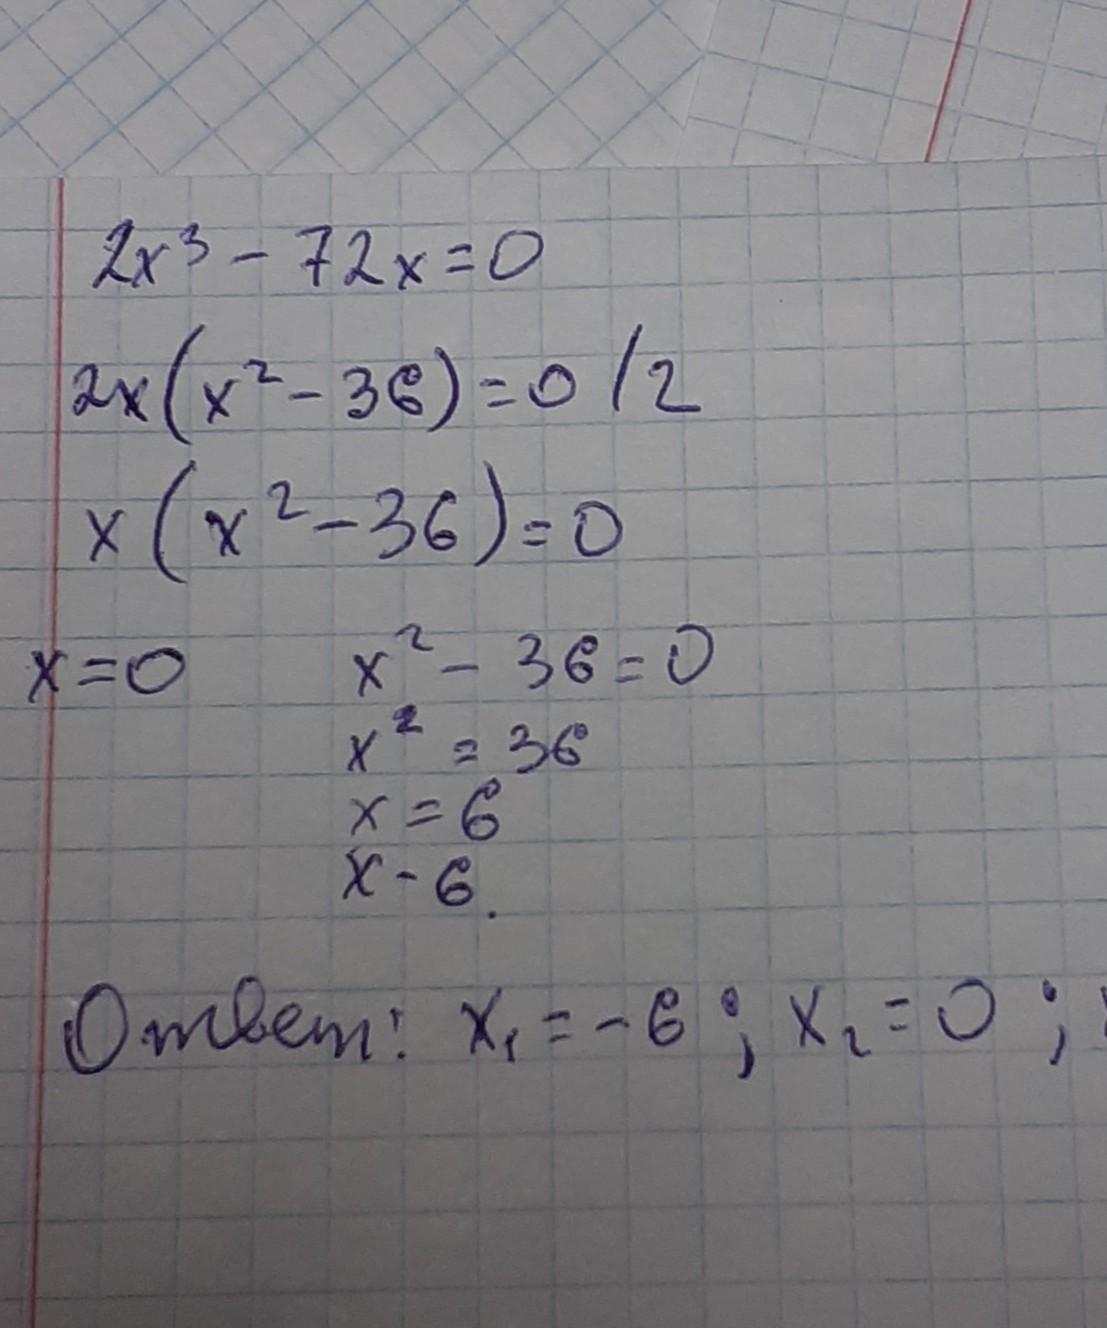 2x³ - 72x = 0
2x(x² - 36) = 0 /2
x(x² - 36) = 0
x = 0 x² - 36 = 0
x² = 36
x = 6
x - 6.
Ответ: x₁ = -6; x₂ = 0;